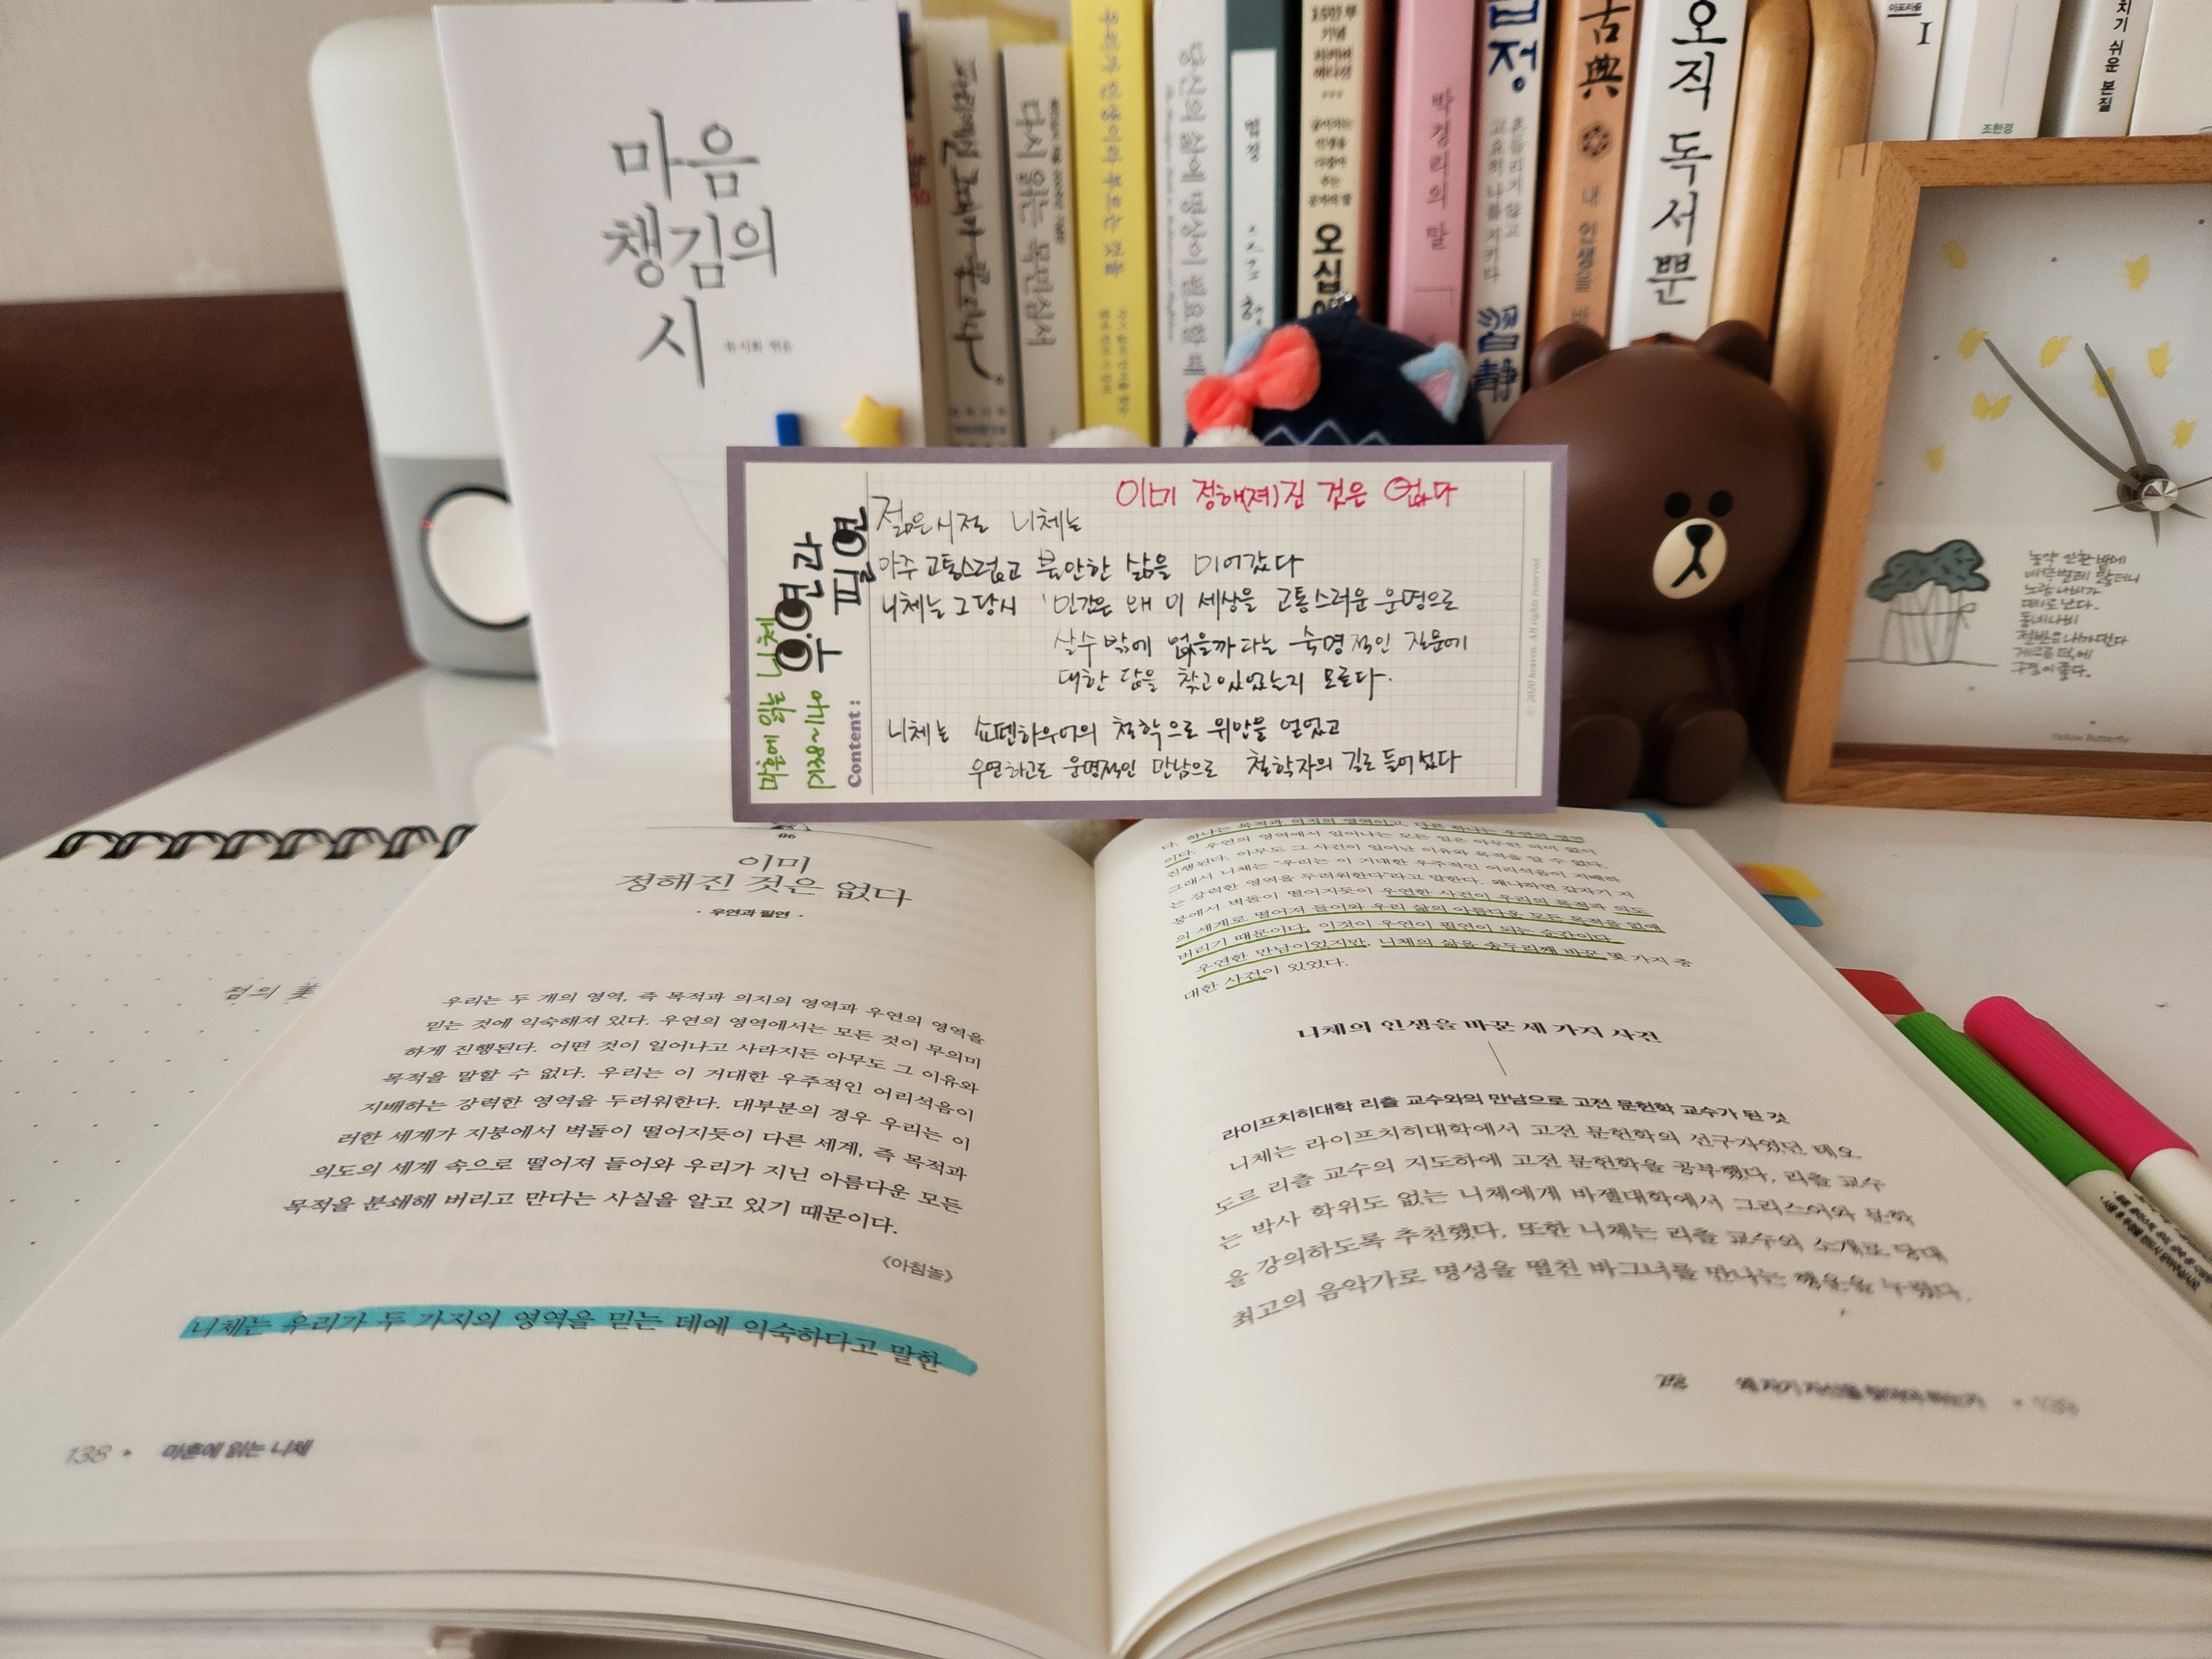 마음
챙김의
시
류시화 엮음
다시 읽는 목민심서
우리가 인생이라 부르는 것들
당신의 삶에 명상이 필요할 때
법정
15만 부
기념
오십
박경리의 말
흔들리지 않고
고요히 나를 지키다
정
靜
古典
내 인생을
오직
독
서
뿐
I
조한경
치기 쉬운 본질
이미 정해(져)진 것은 없다
젊은시절 니체는
아주 고통스럽고 불안한 삶을 이어갔다
니체는 그당시 '인간은 왜 이 세상을 고통스러운 운명으로
살수밖에 없을까'라는 숙명적인 질문에
대한 답을 찾고있었는지 모른다.
니체는 쇼펜하우어의 철학으로 위안을 얻었고
우연하고도 운명적인 만남으로 철학자의 길로 들어섰다
마흔에 읽는 니체
p138~140
우연과
필연
Content:
© 2020 All rights reserved
노랑나비가
동네나비
Yellow Butterfly
점의 美
06
이미
정해진 것은 없다
· 우연과 필연 ·
우리는 두 개의 영역, 즉 목적과 의지의 영역과 우연의 영역을
믿는 것에 익숙해져 있다. 우연의 영역에서는 모든 것이 무의미
하게 진행된다. 어떤 것이 일어나고 사라지든 아무도 그 이유와
목적을 말할 수 없다. 우리는 이 거대한 우주적인 어리석음이
지배하는 강력한 영역을 두려워한다. 대부분의 경우 우리는 이
러한 세계가 지붕에서 벽돌이 떨어지듯이 다른 세계, 즉 목적과
의도의 세계 속으로 떨어져 들어와 우리가 지닌 아름다운 모든
목적을 분쇄해 버리고 만다는 사실을 알고 있기 때문이다.
《아침놀》
니체는 우리가 두 가지의 영역을 믿는 데에 익숙하다고 말한
138 • 마흔에 읽는 니체
다. 하나는 목적과 의지의 영역이고, 다른 하나는 우연의 영역
이다. 우연의 영역에서 일어나는 모든 일은 아무런 의미 없이
진행된다. 아무도 그 사건이 일어난 이유와 목적을 알 수 없다.
그래서 니체는 "우리는 이 거대한 우주적인 어리석음이 지배하
는 강력한 영역을 두려워한다"라고 말한다. 왜냐하면 갑자기 지
붕에서 벽돌이 떨어지듯이 우연한 사건이 우리의 목적과 의도
의 세계로 떨어져 들어와 우리 삶의 아름다운 모든 목적을 없애
버리기 때문이다. 이것이 우연이 필연이 되는 순간이다.
우연한 만남이었지만, 니체의 삶을 송두리째 바꾼 몇 가지 중
대한 사건이 있었다.
니체의 인생을 바꾼 세 가지 사건
라이프치히대학 리츨 교수와의 만남으로 고전 문헌학 교수가 된 것
니체는 라이프치히대학에서 고전 문헌학의 선구자였던 테오
도르 리츨 교수의 지도하에 고전 문헌학을 공부했다. 리츨 교수
는 박사 학위도 없는 니체에게 바젤대학에서 그리스어와 문학
을 강의하도록 추천했다. 또한 니체는 리츨 교수의 소개로 당대
최고의 음악가로 명성을 떨친 바그너를 만나는 행운을 누렸다.